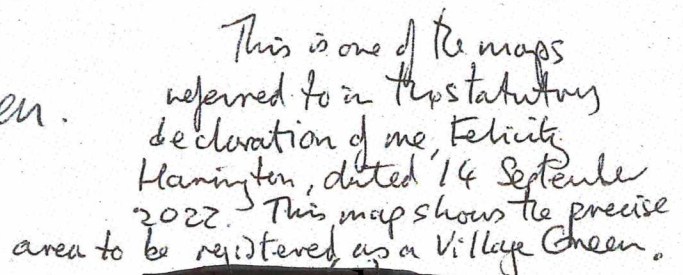 This is one of the maps
en. referred to in this statutory
declaration of me, Felicity
Harington, dated 14 September
2022. This map shows the precise
area to be registered as a Village Green.